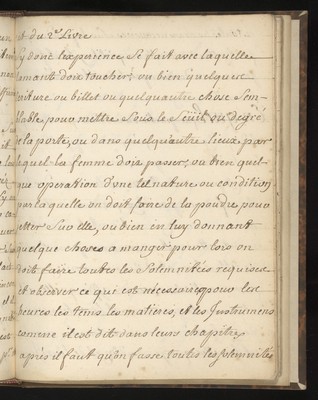 et du 2.e Livre
y dont l'experience se fait avec laquelle
l'amant doit toucher, ou bien quelque es
criture ou billet ou quelquautre chose Sem-
blable pour mettre Sous le Seüil ou degré
de la porte, ou dans quelqu'autre lieux par
lequel la femme doit passer, ou bien quel-
que operation d'une tel nature ou condition
par laquelle on doit faire de la poudre pour
jetter Sur elle, ou bien en luy donnant
quelque choses a manger pour lors on
doit faire toutes les Solemnitées requises
et observer ce qui est necessaire pour les
heures les tems les matieres, et les Instrumens
comme il est dit dans leurs chapitre,
apres il faut qu'on fasse toutes les solemnités